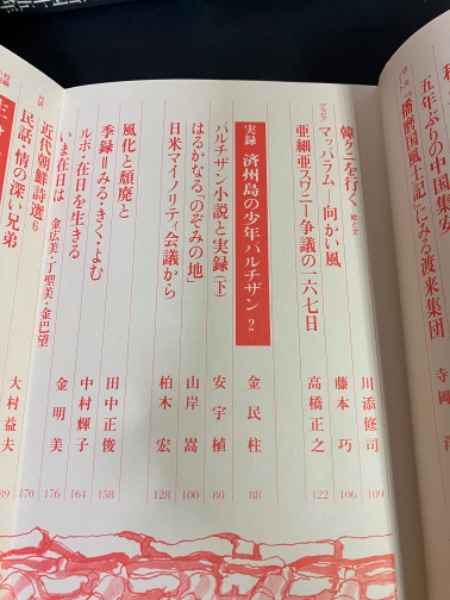 五年ぶりの中国集安
「播磨国風土記」にみる渡来集団
寺岡
韓クニを行く 絵と文 川添修司 109
マッパラム―向かい風 藤本巧 106
亜細亜スワニー争議の一六七日 高橋正之 122
実録 済州島の少年パルチザン 2 金民柱 88
パルチザン小説と実録(下) 安宇植 80
はるかなる「のぞみの地」 山岸嵩 100
日米マイノリティ会議から 柏木宏 128
風化と頽廃と 田中正俊 158
季録＝みる・きく・よむ 中村輝子 164
ルポ・在日を生きる 金明美 176
いま在日は 金広美・丁聖美・金巴望 170
近代朝鮮詩選6 大村益夫 89
民話・情の深い兄弟